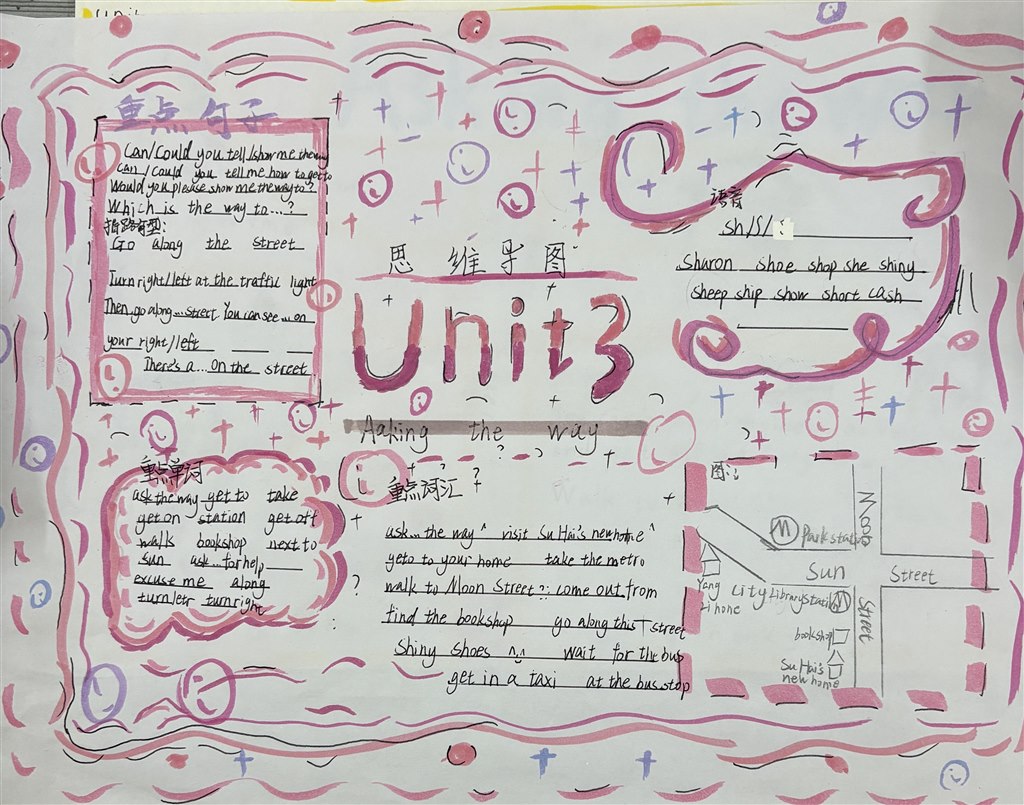 Unit
重点句子
Can/Could you tell/show me the way
Can/could you tell me how to get to
Would you please show me the way to?
Which is the way to...?
指路句型:
Go along the street
Turn right/left at the traffic light
Then go along...street You can see...on
your right/left
There's a...on the street
语音
sh/ʃ/:
Sharon shoe shop she shiny
sheep ship show short cash
思维导图
Unit3
Aaking the way
重点单词
ask the way get to take
get on station get off
walk bookshop next to
sun ask...for help
excuse me along
turn letr turn right
重点词汇
ask...the way visit Su Hai's new home
geto to your home take the metro
walk to Moon Street come out from
find the bookshop go along this street
Shiny shoes wait for the bus
get in a taxi at the bus stop
图:
Moon
Street
M Park stati
Sun Street
Yang
home
City Library station M
bookshop
Su Hai's
new home